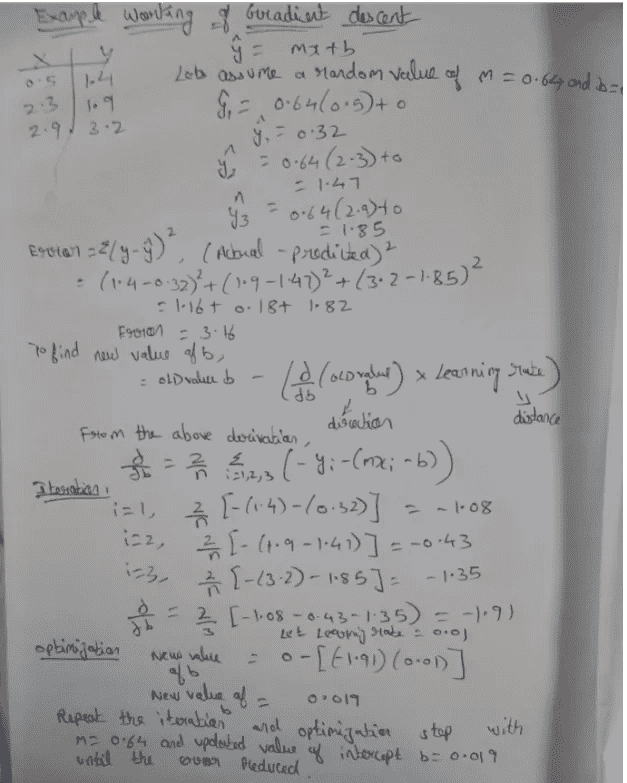 Example working of Gradient descent
ŷ = mx+b
X Y
0.5 1.4
2.3 1.9
2.9 3.2
Lets assume a random value of m = 0.64 and b=
ŷ₁ = 0.64(0.5)+0
ŷ₁ = 0.32
ŷ₂ = 0.64(2.3)+0
= 1.47
ŷ₃ = 0.64(2.9)+0
= 1.85
Error = Σ(y-ŷ)², (Actual - predicted)²
= (1.4-0.32)²+(1.9-1.47)²+(3.2-1.85)²
= 1.16+ 0.18+ 1.82
Error = 3.16
To find new value of b,
= OLD value b - (d/db (OLD value b) × Learning rate)
direction distance
From the above derivation,
d/db = 2/n Σ i=1,2,3 (-y i -(mx i -b))
Iteration:
i=1, 2/n [-(1.4)-(0.32)] = -1.08
i=2, 2/n [-(1.9-1.47)] = -0.43
i=3, 2/n [-(3.2)-1.85] = -1.35
d/db = 2/3 [-1.08-0.43-1.35) = -1.91
Let Learning rate = 0.01
optimization New value of b = 0-[(-1.91)(0.01)]
New value of b = 0.019
Repeat the iteration and optimization step with
m= 0.64 and updated value of intercept b= 0.019
until the error reduced.